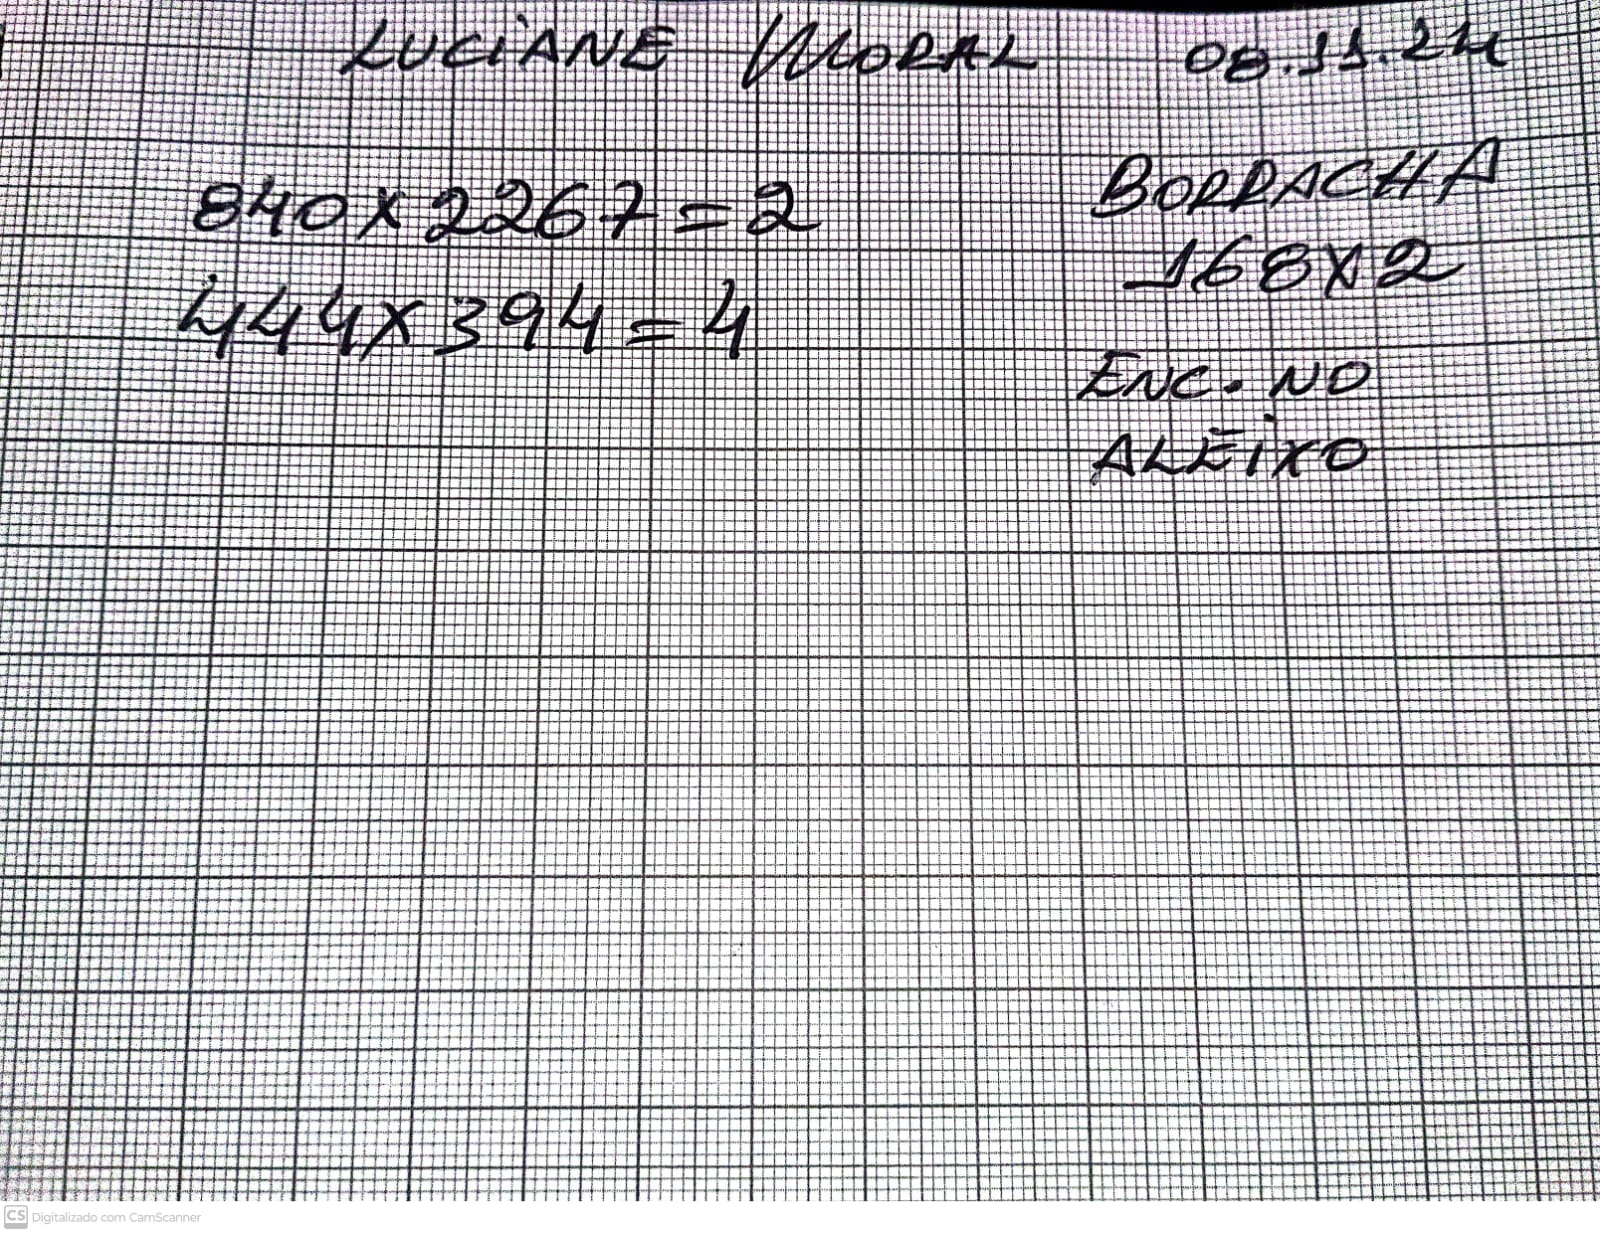 LUCIANE MORAL 08.11.24
840X2267=2
444X394=4
BORRACHA
168X2
ENC. NO
ALEIXO
CS Digitalizado com CamScanner